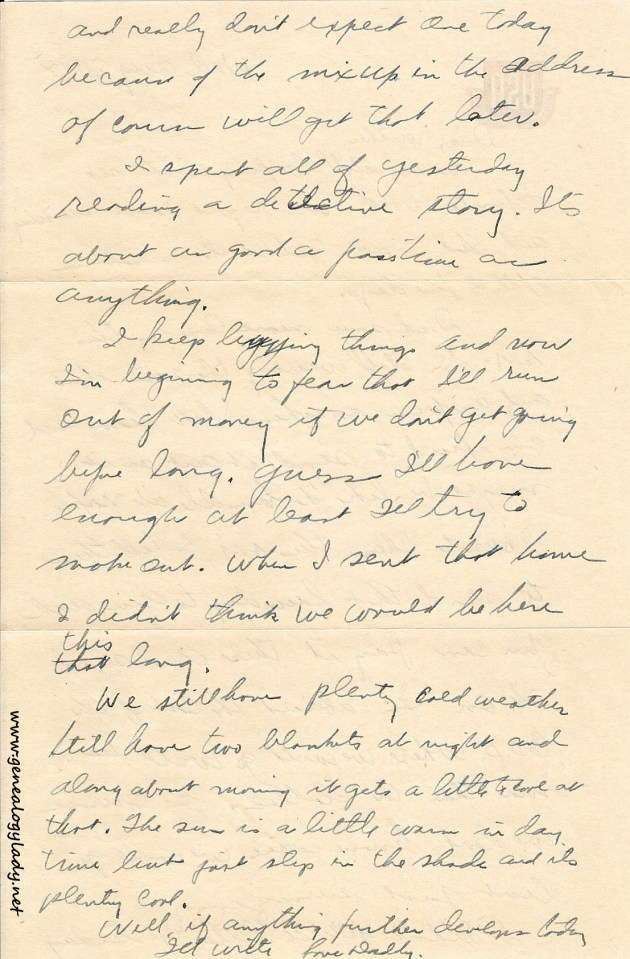 and really don't expect one today
because of the mixup in the address
of course will get that later.
I spent all of yesterday
reading a detective story. Its
about as good a passtime as
anything.
I keep buying things and now
I'm begining to fear that I'll run
out of money if we don't get going
before long. Guess I'll have
enough at least I'll try to
make out. When I sent that home
I didn't think we would be here
this
that long.
We still have plenty cold weather
still have two blankets at night and
along about morning it gets a little cool at
that. The sun is a little warm in day
time but just step in the shade and its
plenty cool.
Well, if anything further develops today
I'll write Love Daddy.
www.genealogylady.net